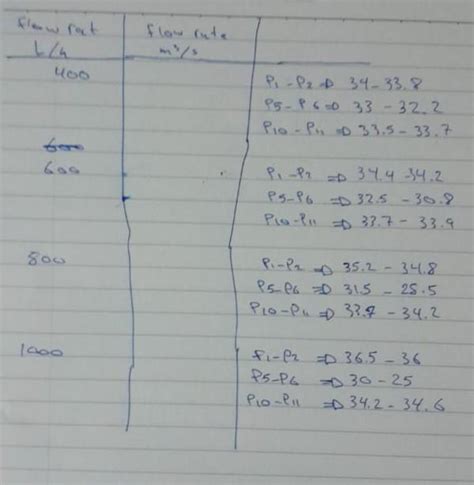 flow rat flow rate
L/h m³/s
400 P₁-P₂ ⇒ 34-33.8
P5-P6 ⇒ 33 - 32.2
P₁₀-P₁₁ ⇒ 33.5-33.7
600
600 P₁-P₂ ⇒ 34.4-34.2
P5-P6 ⇒ 32.5 - 30.8
P₁₀-P₁₁ ⇒ 33.7 - 33.9
800 P₁-P₂ ⇒ 35.2 - 34.8
P5-P6 ⇒ 31.5 - 28.5
P₁₀-P₁₁ ⇒ 33.9 - 34.2
1000 P₁-P₂ ⇒ 36.5-36
P5-P6 ⇒ 30-25
P₁₀-P₁₁ ⇒ 34.2-34.6